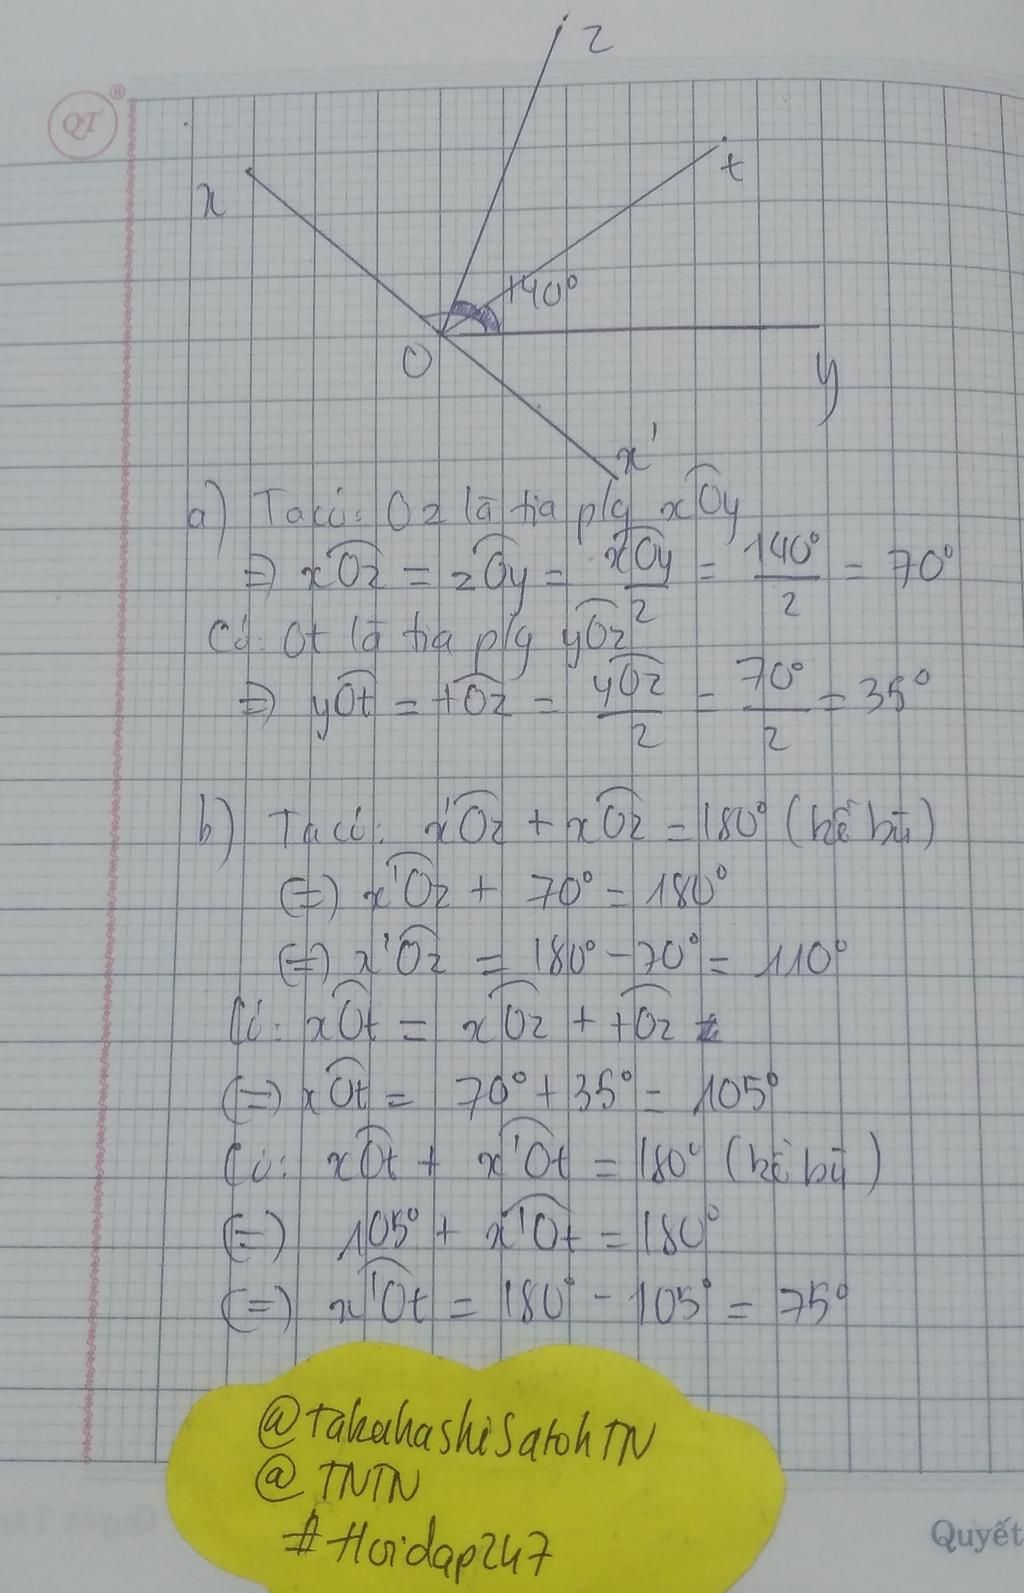 QT ®
z
x
t
140°
O
y
x'
a) Ta có: Oz là tia p/g xOy
=> xOz = zOy = xOy/2 = 140°/2 = 70°
Có: Ot là tia p/g yOz
=> yOt = tOz = yOz/2 = 70°/2 = 35°
b) Ta có: x'Oz + xOz = 180° (kề bù)
(=) x'Oz + 70° = 180°
(=) x'Oz = 180° - 70° = 110°
Có: xOt = xOz + tOz
(=) xOt = 70° + 35° = 105°
Có: xOt + x'Ot = 180° (kề bù)
(=) 105° + x'Ot = 180°
(=) x'Ot = 180° - 105° = 75°
@TakahashiSatohTN
@TNTN
#Hoidap247
Quyết